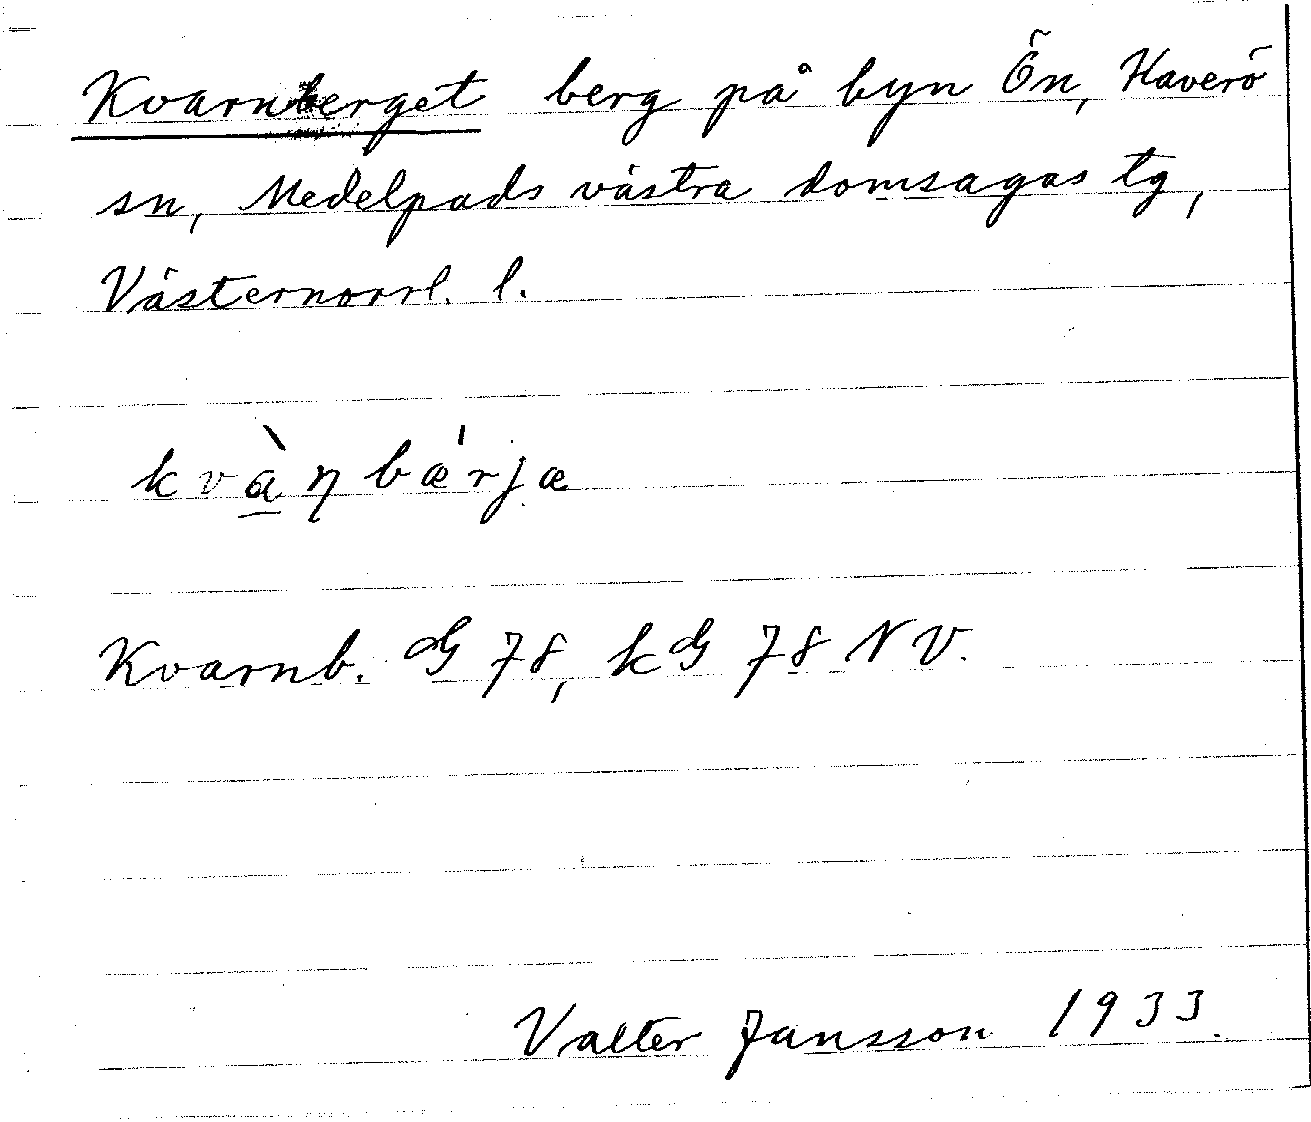 Kvarnberget berg på byn Ön, Haverö
sn, Medelpads västra domsagas tg,
Västernorrl. l.
kvàṇbǽrjæ
Kvarnb. G 78, kG 78 NV.
Valter Jansson 1933.